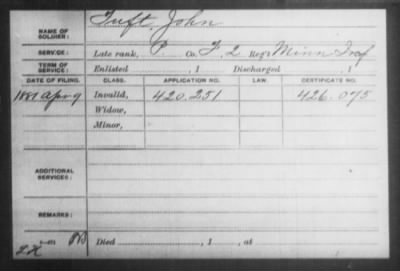 NAME OF SOLDIER: Tuft, John
SERVICE: Late rank, P. Co. F, 2 Reg't Minn Inf
TERM OF SERVICE: Enlisted , 1 Discharged , 1
DATE OF FILING. CLASS. APPLICATION NO. LAW. CERTIFICATE NO.
1881 Apr 9 Invalid, 420.251 426.075
Widow,
Minor,
ADDITIONAL SERVICES:
REMARKS:
Died , 1 , at